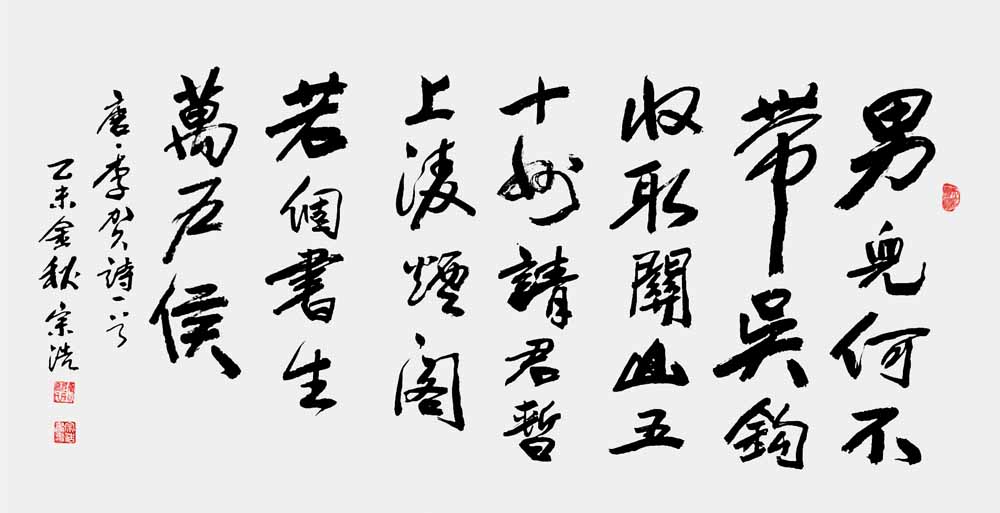 男兒何不
带吴鈎
收取關山五
十州請君暫
上凌煙阁
若個書生
萬户侯
唐·李贺詩一首
乙未金秋 宗浩